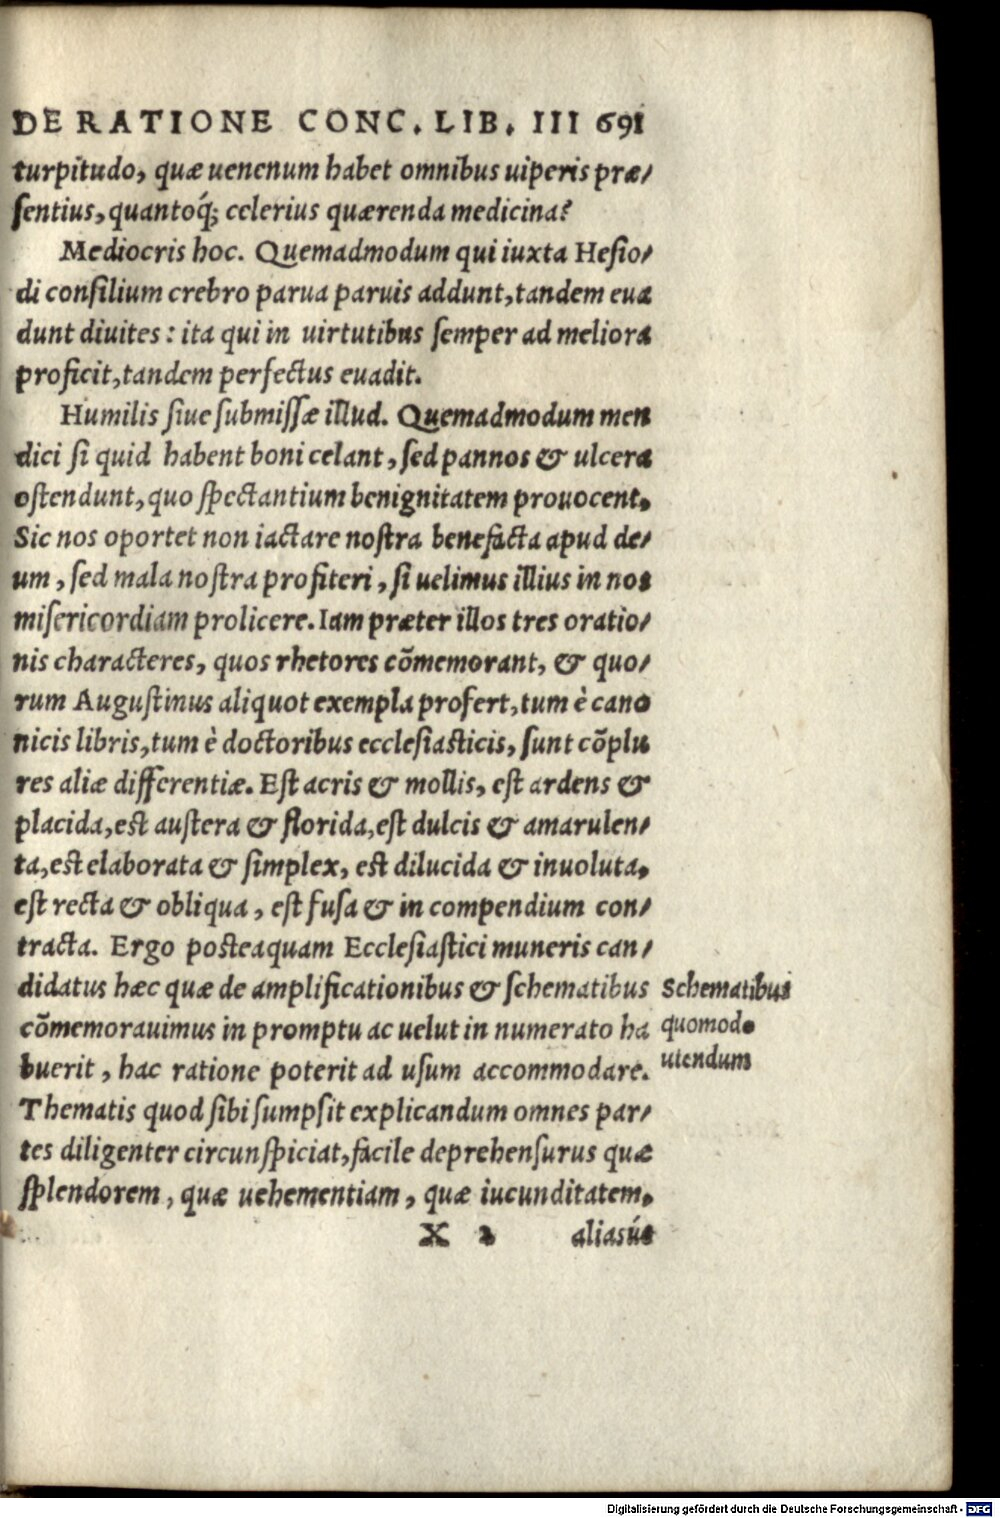 DE RATIONE CONC. LIB. III 691
turpitudo, quæ uenenum habet omnibus uiperis præ/
ſentius, quantoq́; celerius quærenda medicina?
Mediocris hoc. Quemadmodum qui iuxta Heſio/
di conſilium crebro parua paruis addunt, tandem eua
dunt diuites: ita qui in uirtutibus ſemper ad meliora
proficit, tandem perfectus euadit.
Humilis ſiue ſubmiſſæ illud. Quemadmodum men
dici ſi quid habent boni celant, ſed pannos & ulcera
oſtendunt, quo ſpectantium benignitatem prouocent,
Sic nos oportet non iactare noſtra benefacta apud de/
um, ſed mala noſtra profiteri, ſi uelimus illius in nos
miſericordiam prolicere. Iam præter illos tres oratio/
nis characteres, quos rhetores cõmemorant, & quo/
rum Auguſtinus aliquot exempla profert, tum è cano
nicis libris, tum è doctoribus eccleſiaſticis, ſunt cõplu
res aliæ differentiæ. Eſt acris & mollis, eſt ardens &
placida, eſt auſtera & florida, eſt dulcis & amarulen/
ta, eſt elaborata & ſimplex, eſt dilucida & inuoluta,
eſt recta & obliqua, eſt fuſa & in compendium con/
tracta. Ergo poſteaquam Eccleſiaſtici muneris can/
didatus hæc quæ de amplificationibus & ſchematibus
cõmemorauimus in promptu ac uelut in numerato ha
buerit, hac ratione poterit ad uſum accommodare.
Thematis quod ſibi ſumpſit explicandum omnes par/
tes diligenter circunſpiciat, facile deprehenſurus quæ
ſplendorem, quæ uehementiam, quæ iucunditatem,
X 2 aliasúe
Schematibus
quomodo
utendum
Digitalisierung gefördert durch die Deutsche Forschungsgemeinschaft - DFG